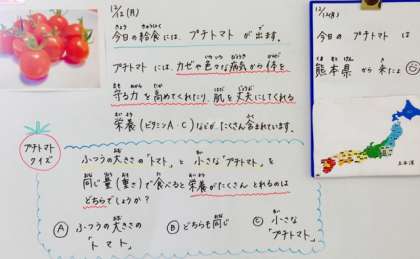 12/12(月)
今日の給食には、プチトマトが出ます。
プチトマトには、カゼや色々な病気から体を
守る力を高めてくれたり、肌を丈夫にしてくれる
栄養(ビタミンA・C)などがたくさん含まれています。
プチトマト
クイズ
ふつうの大きさの「トマト」と小さな「プチトマト」を
同じ量(重さ)で食べると栄養がたくさんとれるのは
どちらでしょうか?
Ⓐ ふつうの大きさの
「トマト」
Ⓑ どちらも同じ
Ⓒ 小さな
「プチトマト」
12/12(月)
今日のプチトマトは
熊本県から来たよ